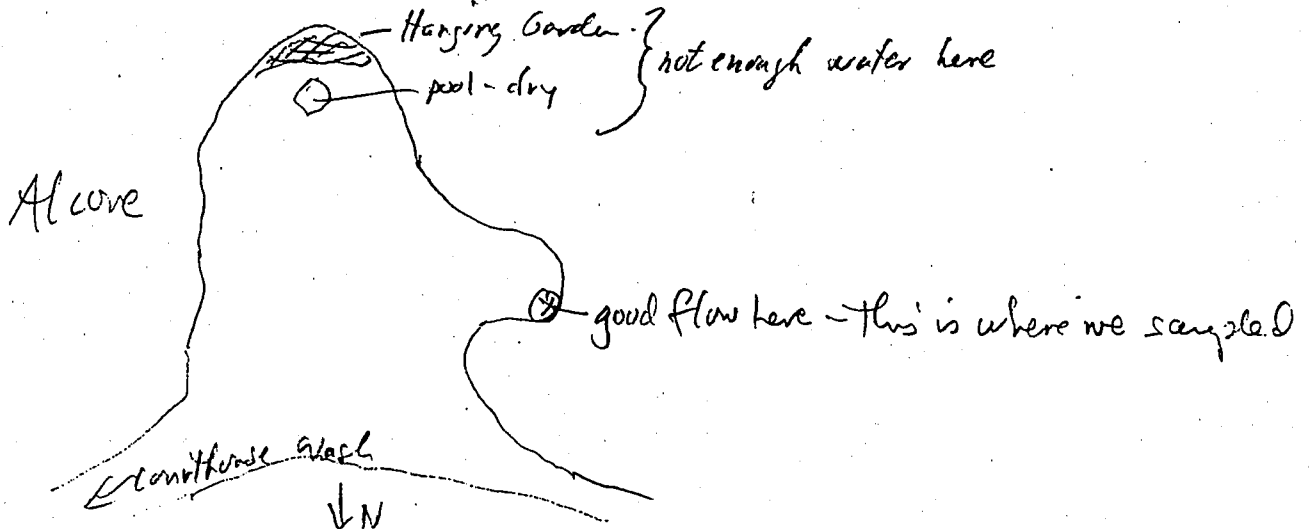 Hanging Garden.
pool - dry
not enough water here
Alcove
good flow here - this is where we sampled
Courthouse Wash
N